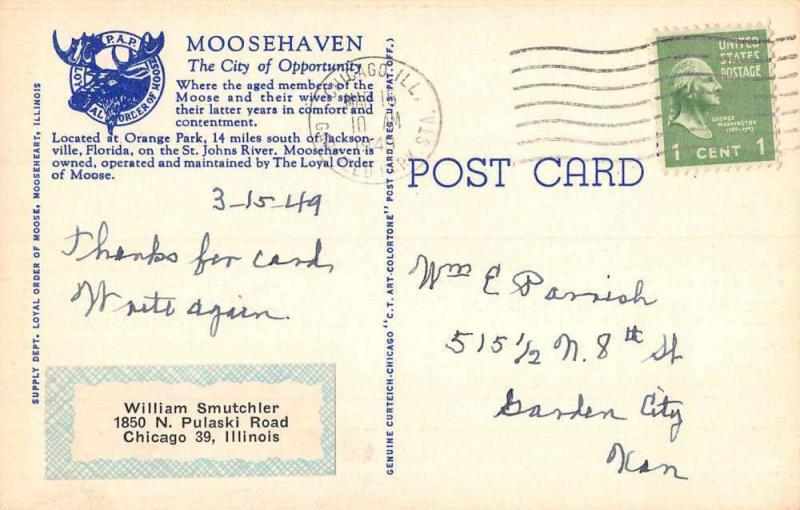 MOOSEHAVEN
The City of Opportunity
Where the aged members of the
Moose and their wives spend
their latter years in comfort and
contentment.
Located at Orange Park, 14 miles south of Jackson-
ville, Florida, on the St. Johns River. Moosehaven is
owned, operated and maintained by The Loyal Order
of Moose.
P.A.P.
LOYAL ORDER OF MOOSE
SUPPLY DEPT. LOYAL ORDER OF MOOSE, MOOSEHEART, ILLINOIS
3-15-49
Thanks for card,
Write again.
William Smutchler
1850 N. Pulaski Road
Chicago 39, Illinois
GENUINE CURTEICH-CHICAGO "C.T. ART-COLORTONE" POST CARD (REG. U.S. PAT. OFF.)
CHICAGO, ILL.
STA.
UNITED
STATES
POSTAGE
GEORGE
WASHINGTON
1789-1797
1 CENT 1
POST CARD
Wm E Parrish
515 1/2 N. 8th St
Garden City
Kan